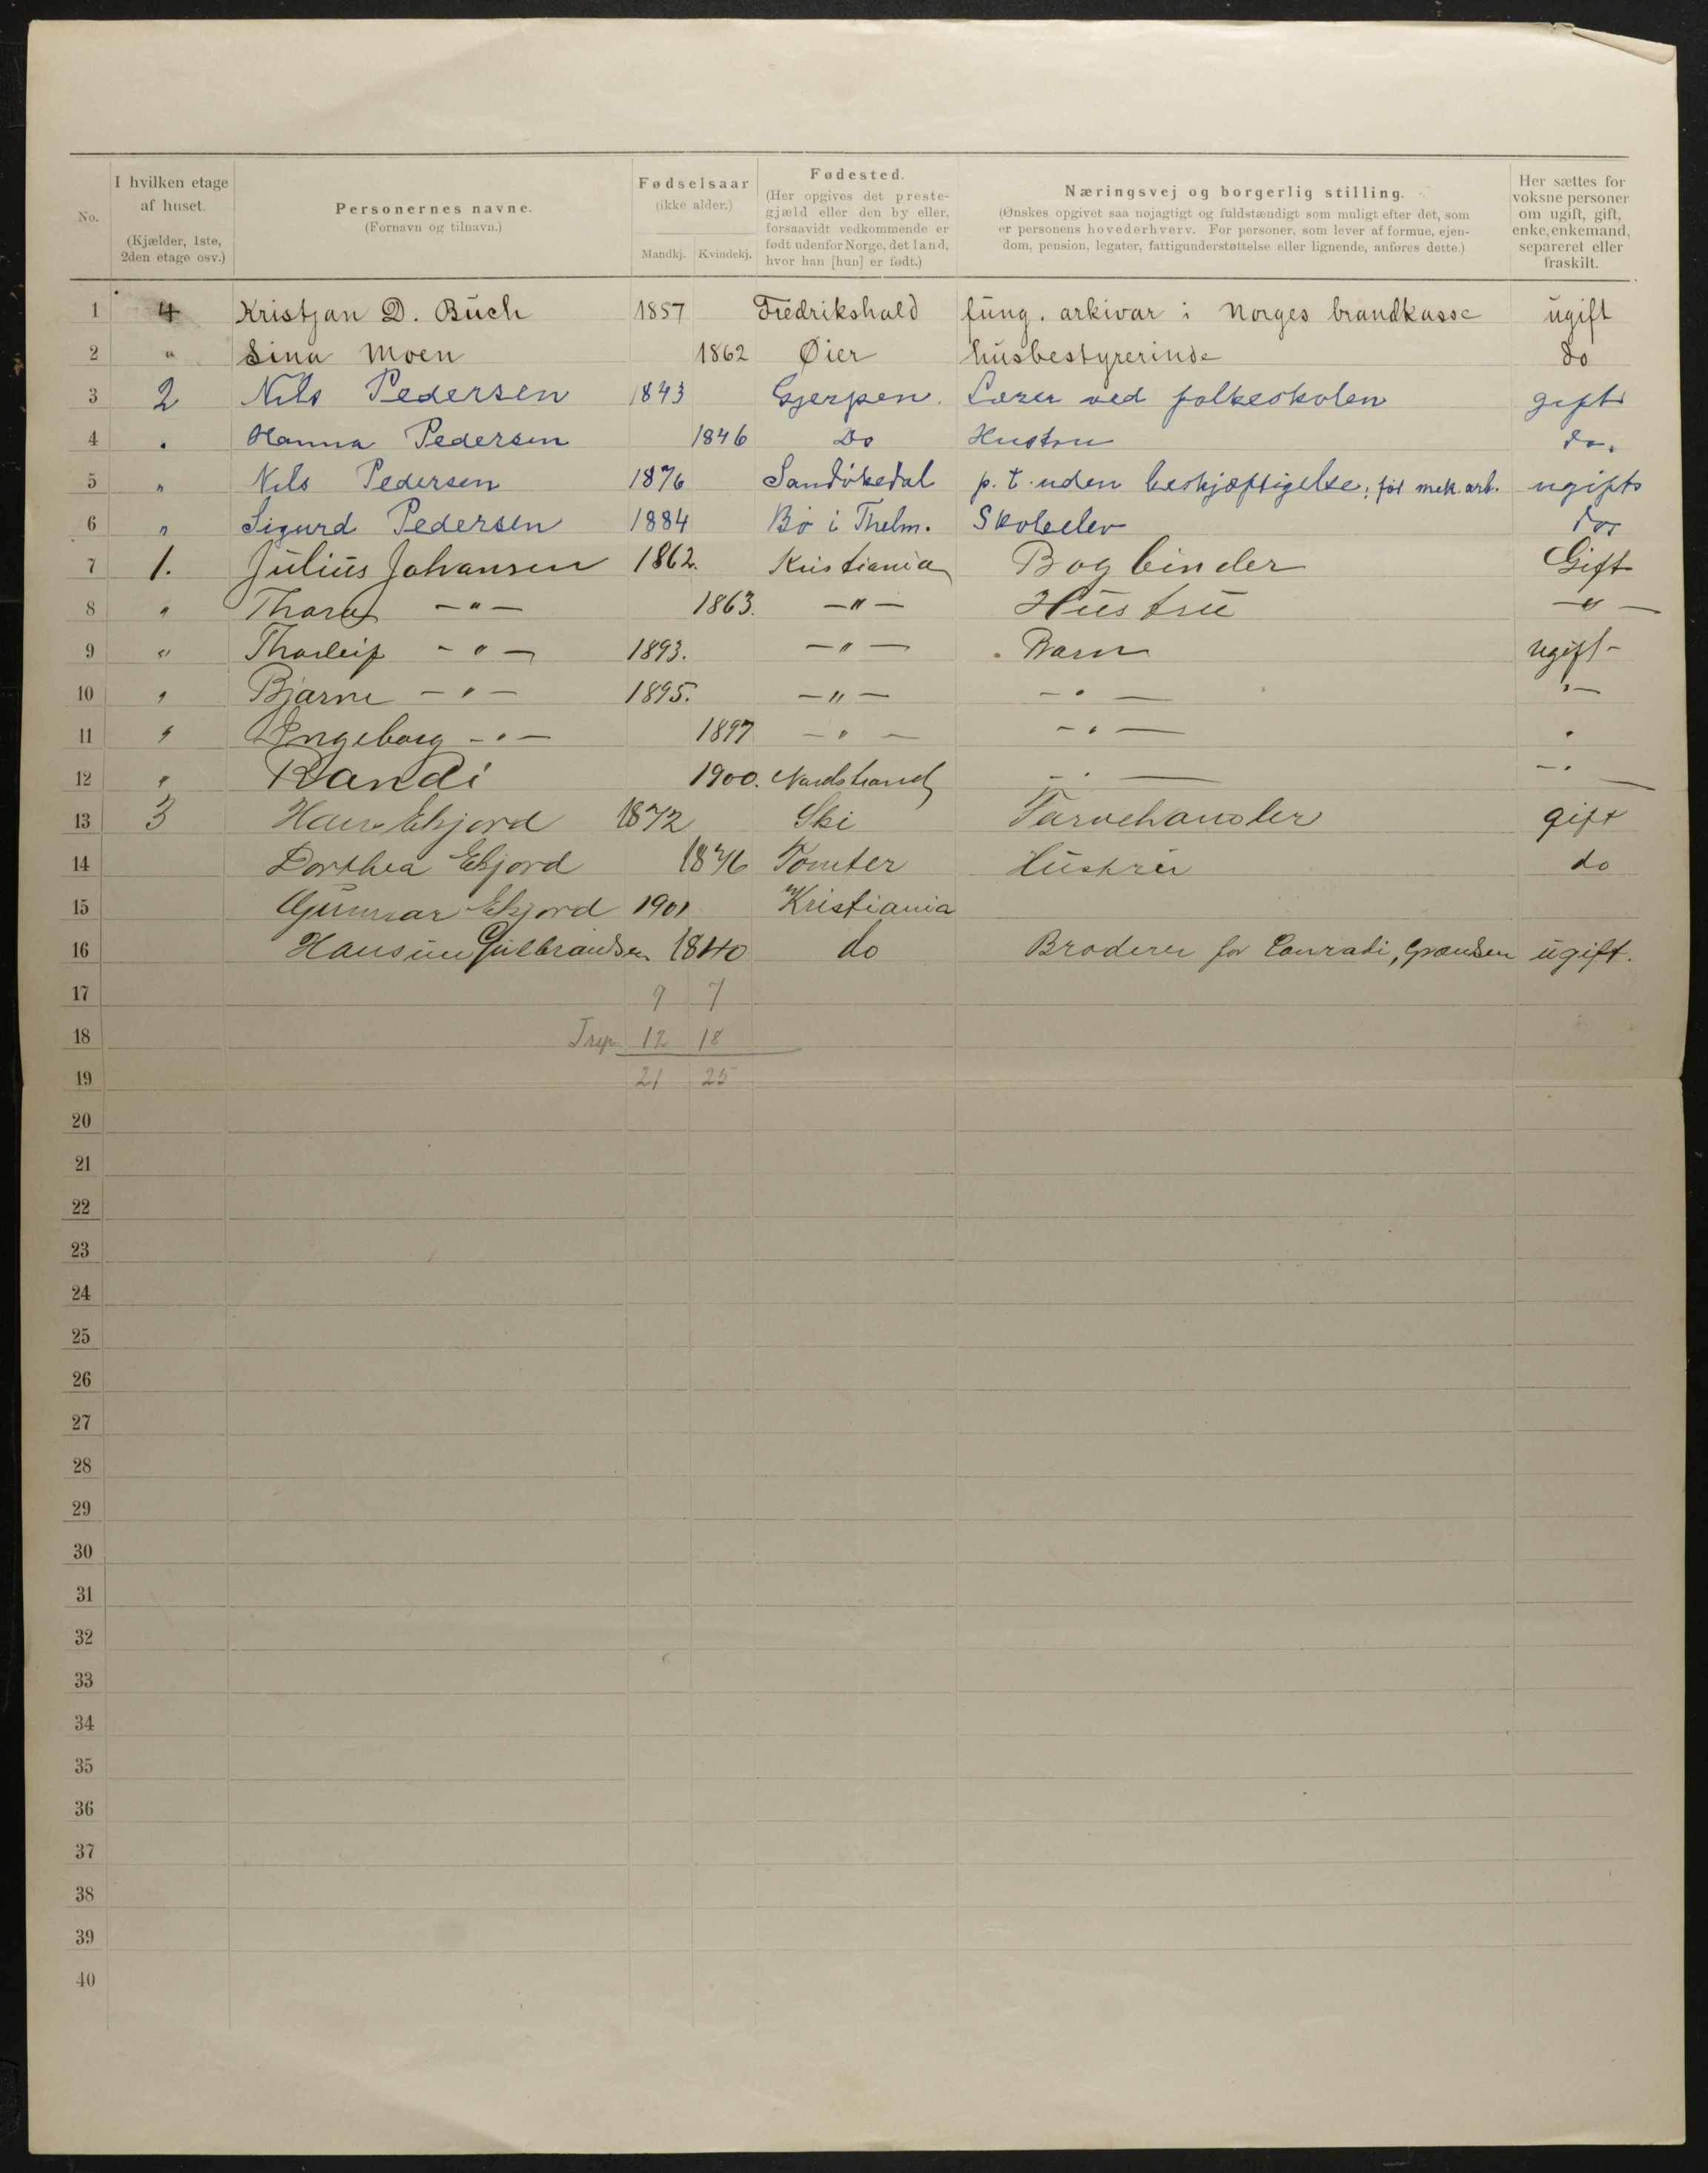 No. | I hvilken etage af huset. (Kjælder, 1ste, 2den etage osv.) | Personernes navne. (Fornavn og tilnavn.) | Fødselsaar (ikke alder.) Mandkj. Kvindekj. | Fødested. (Her opgives det prestegjæld eller den by eller, forsaavidt vedkommende er født udenfor Norge, det land, hvor han [hun] er født.) | Næringsvej og borgerlig stilling. (Ønskes opgivet saa nøjagtigt og fuldstændigt som muligt efter det, som er personens hovederhverv. For personer, som lever af formue, ejendom, pension, legater, fattigunderstøttelse eller lignende, anføres dette.) | Her sættes for voksne personer om ugift, gift, enke, enkemand, separeret eller fraskilt.
1 4 Kristjan D. Buch 1857 Fredrikshald fung. arkivar i Norges brandkasse ugift
2 " Sina Moen 1862 Øier husbestyrerinde do
3 2 Nils Pedersen 1843 Gjerpen. Lærer ved folkeskolen gift
4 " Hanna Pedersen 1846 Do Hustru do.
5 " Nils Pedersen 1876 Sandøkedal p. t. uden beskjæftigelse, før mek. arb. ugift
6 " Sigurd Pedersen 1884 Bø i Thelm. Skoleelev do
7 1. Julius Johansen 1862. Kristiania Bogbinder Gift
8 " Thora —"— 1863. —"— Hustru —"—
9 " Thorleif —"— 1893. —"— Barn ugift
10 " Bjarne —"— 1895. —"— —"— "—
11 " Ingeborg —"— 1897 —"— —"— "
12 " Randi 1900. Nordstrand —"— —"—
13 3 Hans Ekjord 1872 Ski Farvehandler gift
14 Dorthea Ekjord 1876 Tomter Hustru do
15 Gunnar Ekjord 1901 Kristiania
16 Hansine Gulbrandsen 1840 do Broderer for Conradi, Grændsen ugift.
17 9 7
18 Trsp. 12 18
19 21 25
20
21
22
23
24
25
26
27
28
29
30
31
32
33
34
35
36
37
38
39
40